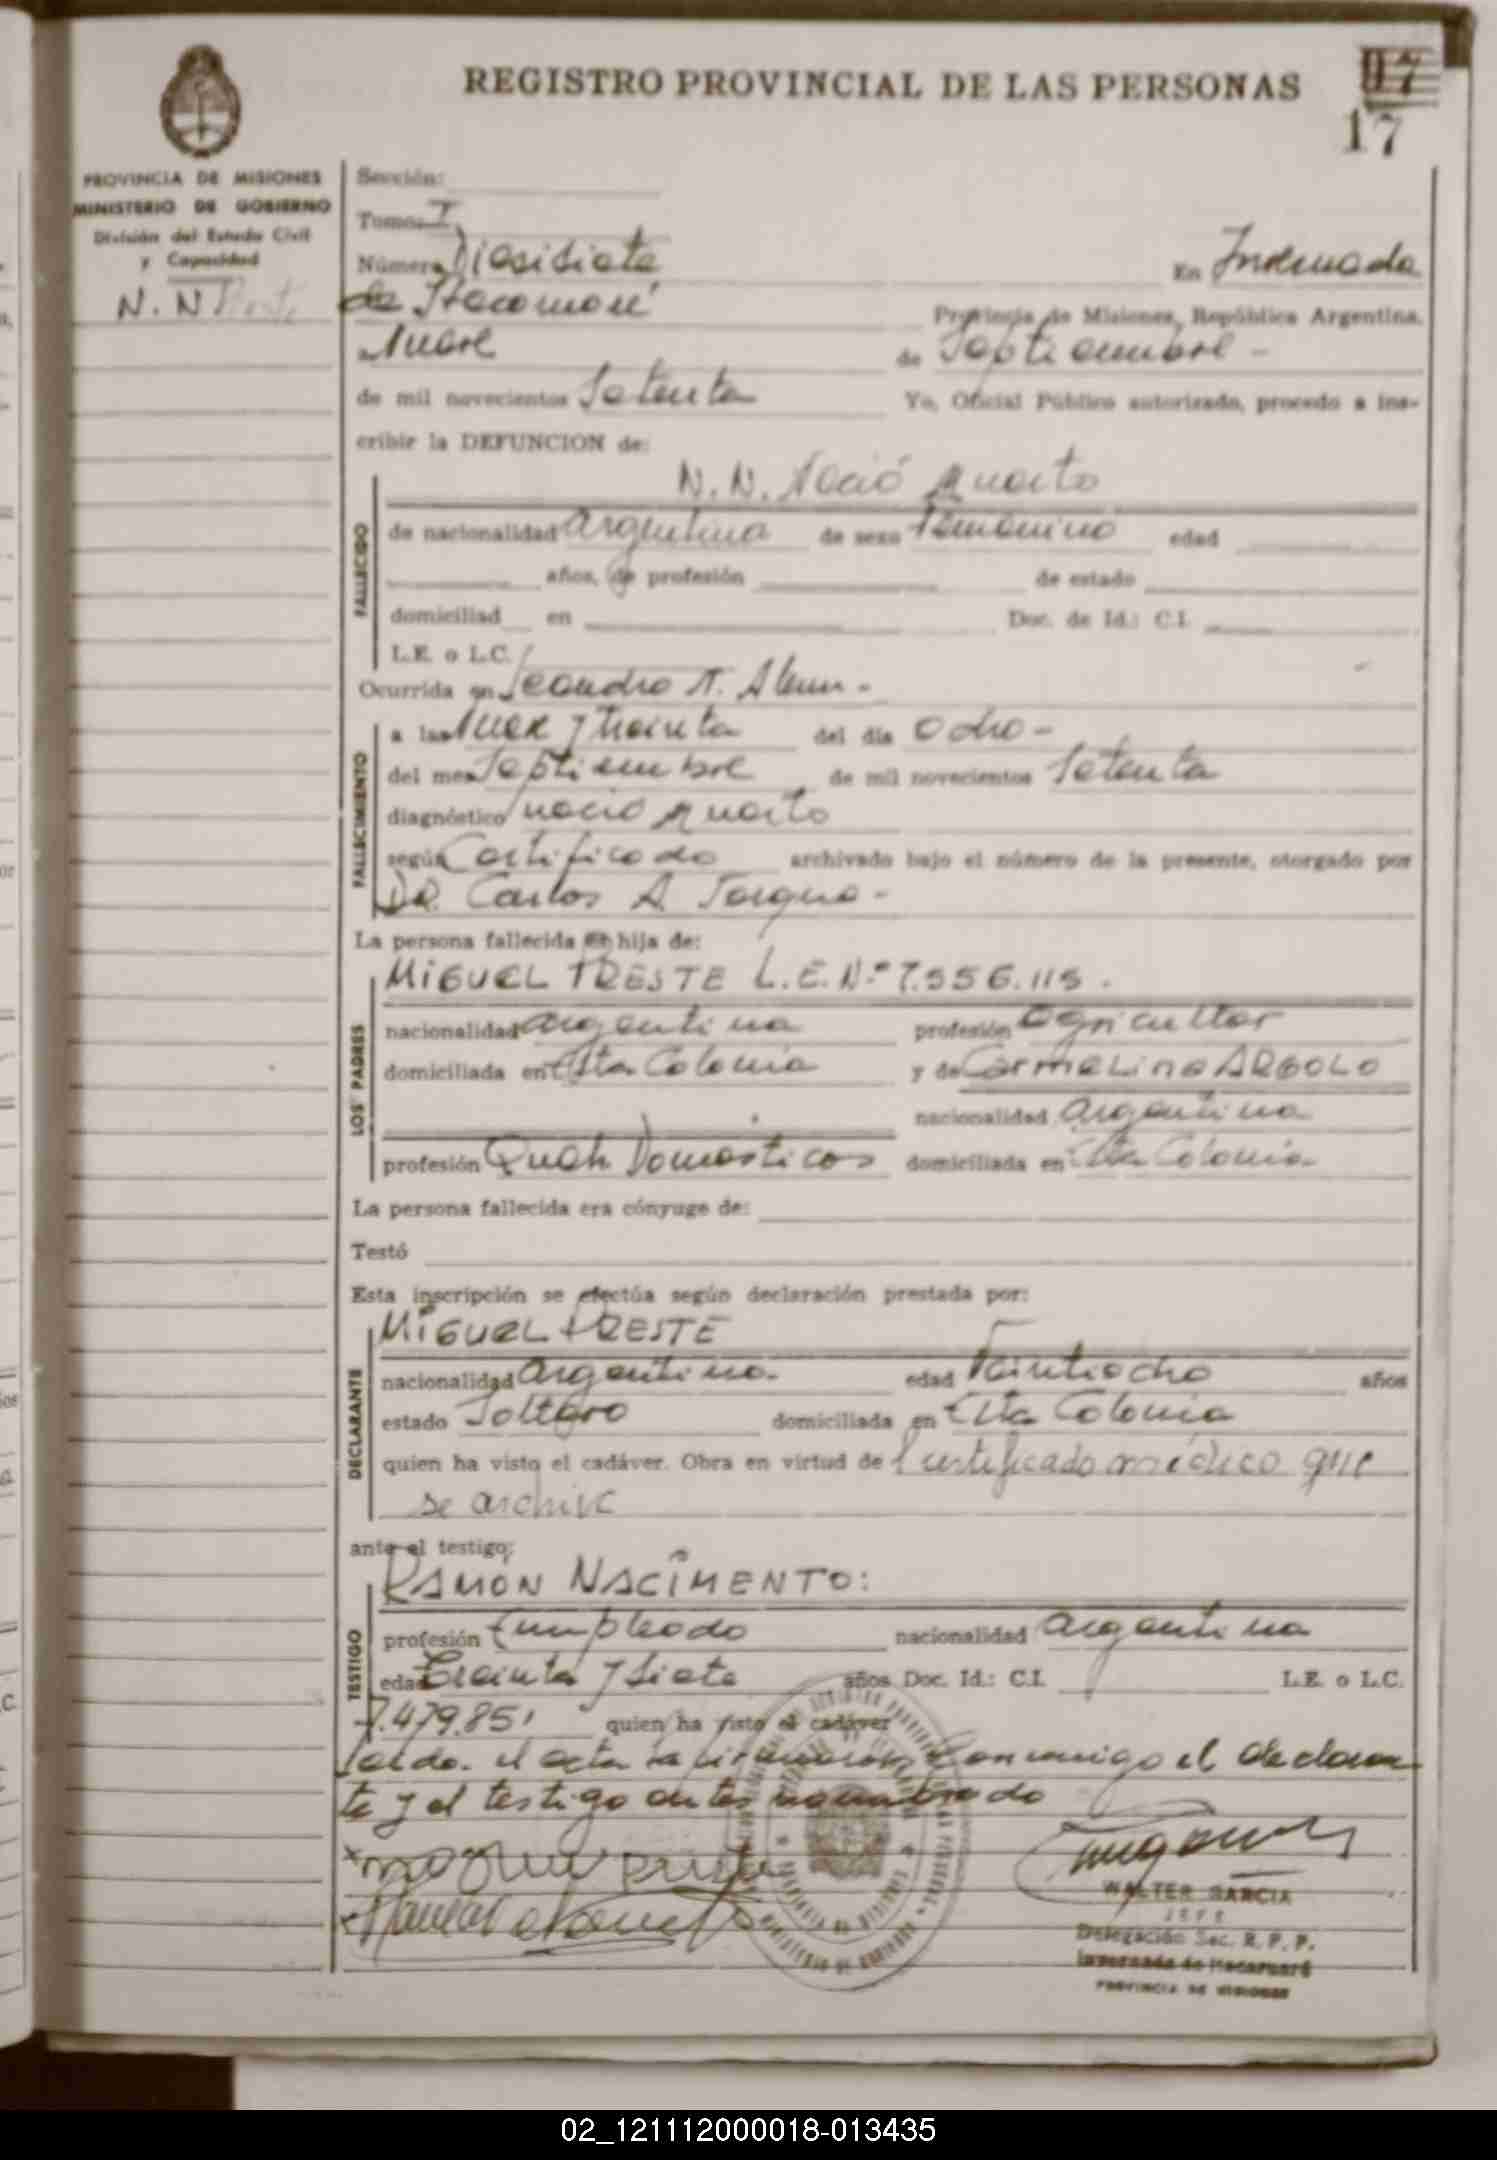 REGISTRO PROVINCIAL DE LAS PERSONAS
17
17
PROVINCIA DE MISIONES
MINISTERIO DE GOBIERNO
División del Estado Civil
y Capacidad
N. N
Sección:
Tomo: I
Número Diesisiete En Invernada
de Itacaruaré Provincia de Misiones, República Argentina,
a Nueve de Septiembre -
de mil novecientos Setenta Yo, Oficial Público autorizado, procedo a ins-
cribir la DEFUNCION de:
N. N. Nació Muerto
FALLECIDO
de nacionalidad argentina de sexo Femenino edad
años, de profesión de estado
domiciliad en Doc. de Id.: C.I.
L.E. o L.C.
Ocurrida en Leandro N. Alem -
FALLECIMIENTO
a las Nueve y treinta del día Ocho -
del mes Septiembre de mil novecientos Setenta
diagnóstico nació Muerto
según Certificado archivado bajo el número de la presente, otorgado por
Dr. Carlos A
La persona fallecida es hija de:
LOS PADRES
MIGUEL PRESTE L.E. N.º 7.556.115.
nacionalidad argentina profesión agricultor
domiciliada en Esta Colonia y de Carmelina ARGOLO
nacionalidad argentina
profesión Queh. Domésticos domiciliada en Esta Colonia
La persona fallecida era cónyuge de:
Testó
Esta inscripción se efectúa según declaración prestada por:
DECLARANTE
MIGUEL PRESTE
nacionalidad argentina. edad Veintiocho años
estado Soltero domiciliada en Esta Colonia
quien ha visto el cadáver. Obra en virtud de certificado médico que
se archiva
ante el testigo:
TESTIGO
RAMON NACIMENTO:
profesión Empleado nacionalidad argentina
edad Treinta y Siete años Doc. Id.: C.I. L.E. o L.C.
7.479.851 quien ha visto el cadáver
Leída el acta la firmaron conmigo el declaran
te y el testigo antes nombrado
WALTER GARCIA
JEFE
Delegación Sec. R. P. P.
Invernada de Itacaruaré
PROVINCIA DE MISIONES
02_121112000018-013435